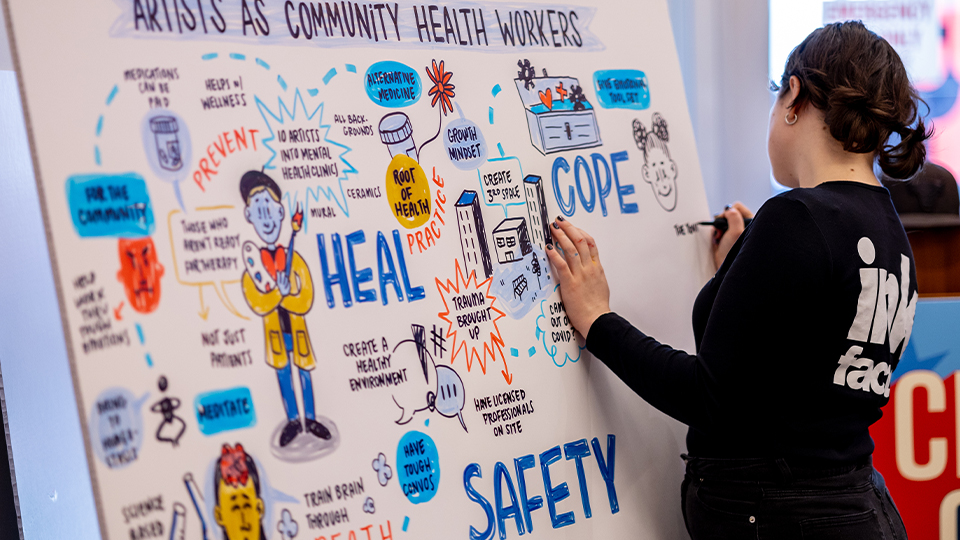 ARTISTS AS COMMUNITY HEALTH WORKERS
MEDICATIONS
CAN BE
PAID
HELPS W/
WELLNESS
ALTERNATIVE
MEDICINE
PREVENT
10 ARTISTS
INTO MENTAL
HEALTH CLINIC!
ALL BACK-
GROUNDS
GROWTH
MINDSET
COPE
FOR THE
COMMUNITY
THOSE WHO
AREN'T READY
FOR THERAPY
MURAL
CERAMICS
ROOT OF
HEALTH
PRACTICE
CREATE
3RD SPACE
HEAL
HELP
WORK THRU
TOUGH
EMOTIONS
NOT JUST
PATIENTS
TRAUMA
BROUGHT
UP
CAME
OUT OF
COVID!
CREATE A
HEALTHY
ENVIRONMENT
HAVE LICENSED
PROFESSIONALS
ON SITE
MEDITATE
HAVE
TOUGH
CONVOS
SAFETY
SCIENCE
BASED
TRAIN BRAIN
THROUGH
ink
fac